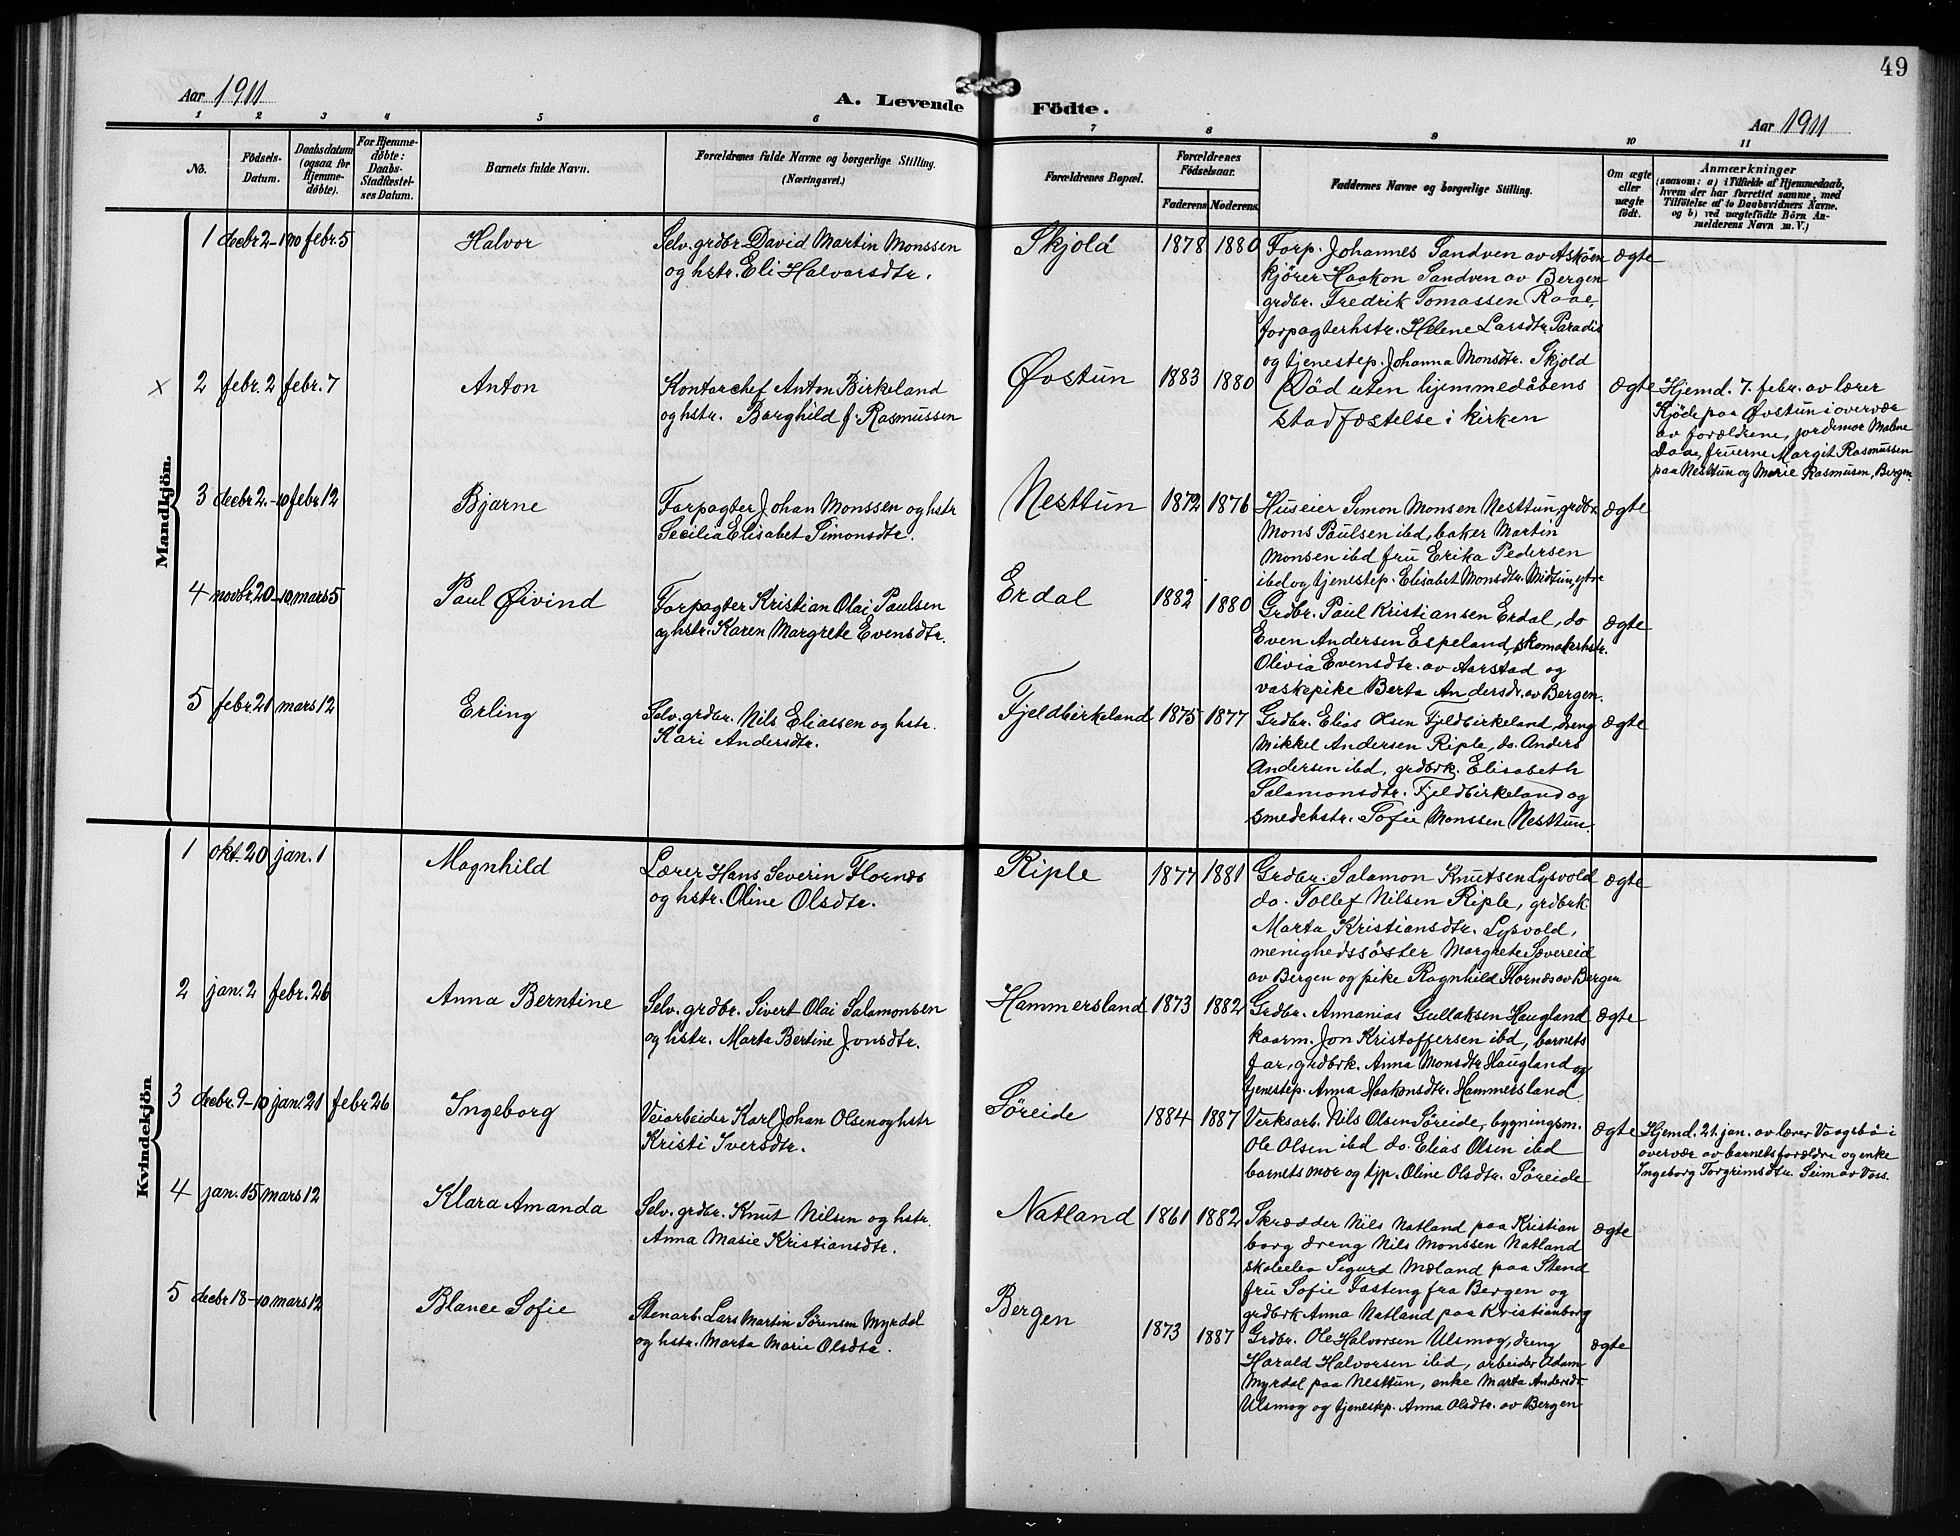 49
Aar 1911
A. Levende Födte.
Aar 1911
1 2 3 4 5 6 7 8 9 10 11
No.
Födsels-
Datum.
Daabsdatum
(ogsaa for
Hjemme-
döbte).
For Hjemme-
döbte:
Daabs-
Stadfæstel-
ses Datum.
Barnets fulde Navn.
Forældrenes fulde Navne og borgerlige Stilling.
(Næringsvei.)
Forældrenes Bopæl.
Forældrenes
Födselsaar.
Faderens Moderens
Faddernes Navne og borgerlige Stilling.
Om ægte
eller
uægte
födt.
Anmærkninger
(saasom: a) i Tilfælde af Hjemmedaab,
hvem der har forrettet samme, med
Tilföielse af to Daabsvidners Navne.
og b) ved uægtefödte Börn An-
melderens Navn m. V.)
Mandkjön.
1 decbr 2-1910 febr. 5
Halvor
Selv. grdbr. David Martin Monssen
og hstr. Eli Halvorsdtr.
Skjold
1878 1880
Forp. Johannes Sandven av Askøen
kjører Haakon Sandven av Bergen
grdbr. Fredrik Tomassen Raae,
forpagterhstr. Helene Larsdtr. Paradis
og tjenestep. Johanna Monsdtr. Skjold
ægte
x 2 febr. 2 febr. 7
Anton
Kontorchef Anton Birkeland
og hstr. Borghild f. Rasmussen
Øvstun
1883 1880
Død uten hjemmedåbens
stadfæstelse i kirken
ægte
Hjemd. 7. febr. av lærer
Kjøde paa Øvstun i overvær
av forældrene, jordemor Malene
Daae, fruerne Margit Rasmussen
paa Nesttun og Marie Rasmusen, Bergen.
3 decbr 2.-10 febr 12
Bjarne
Forpagter Johan Monssen og hstr
Secilia Elisabet Simonsdtr.
Nesttun
1872 1876
Huseier Simon Monsen Nesttun, grdbr
Mons Paulsen ibd, baker Martin
Monsen ibd fru Erika Pedersen
ibd og tjenestep. Elisabet Monsdtr. Midtun, ytre
ægte
4 novbr. 20-10 mars 5
Paul Øivind
Forpagter Kristian Olai Paulsen
og hstr. Karen Margrete Evensdtr.
Erdal
1882 1880
Grdbr. Paul Kristiansen Erdal, do
Even Andersen Espeland, skomakerhstr.
Olivia Evensdtr. av Aarstad og
vaskepike Berta Andersdt. av Bergen.
ægte
5 febr. 21 mars 12
Erling
Selv. grdbr. Nils Eliassen og hstr.
Kari Andersdtr.
Fjeldbirkeland
1875 1877
Grdbr. Elias Olsen Fjeldbirkeland, dreng
Mikkel Andersen Riple, do. Anders
Andersen ibd, grdbrk. Elisabeth
Salamonsdtr. Fjeldbirkeland og
smedehstr. Sofie Monssen Nesttun.
ægte
Kvindekjön
1 okt. 20 jan. 1
Magnhild
Lærer Hans Severin Flornæs
og hstr. Oline Olsdtr.
Riple
1877 1881
Grdbr. Salamon Knutsen Lysvold
do. Tollef Nilsen Riple, grdbrk
Marta Kristiansdtr. Lysvold,
menighedssøster Margrete Sævereid
av Bergen og pike Ragnhild Flornæs av Bergen
ægte
2 jan. 2 febr. 26
Anna Berntine
Selv. grdbr. Sivert Olai Salamonsen
og hstr. Marta Bertine Jonsdtr.
Hammersland
1873 1882
Grdbr. Annanias Gullaksen Haugland
kaarm. Jon Kristoffersen ibd, barnets
far, grdbrk. Anna Monsdtr Haugland og
tjenestep. Anna Haakonsdtr. Hammersland
ægte
3 decbr. 9-10 jan. 21 febr 26
Ingeborg
Veiarbeider Karl Johan Olsen og hstr
Kristi Iversdtr.
Søreide
1884 1887
Verksarb. Nils Olsen Søreide, bygningsm.
Ole Olsen ibd do. Elias Olsen ibd
barnets mor og tjp. Oline Olsdtr. Søreide
ægte
Hjemd. 21. jan. av lærer Vaagsbø i
overvær av barnets forældre og enke
Ingeborg Torgrimsdtr. Seim av Voss.
4 jan. 15 mars 12
Klara Amanda
Selv. grdbr. Knut Nilsen og hstr.
Anna Marie Kristiansdtr.
Natland
1861 1882
Skrædder Nils Natland paa Kristian
borg dreng Nils Monssen Natland
skoleelev Sigurd Mæland paa Stend
fru Sofie Fasteng fra Bergen og
grdbrk Anna Natland paa Kristianborg
ægte
5 decbr 18-10 mars 12
Blance Sofie
Stenarb. Lars Martin Sørensen Myrdal
og hstr. Marta Marie Olsdtr.
Bergen
1873 1887
Grdbr. Ole Halvorsen Ulsmog, dreng
Harald Halvorsen ibid, arbeider Adam
Myrdal paa Nesttun, enke Marta Andersdt.
Ulsmog og tjenestep. Anna Olsdtr. av Bergen
ægte